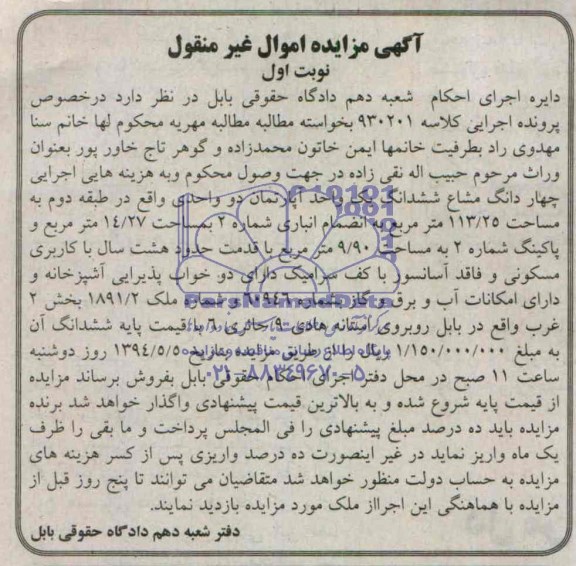 آگهی مزایده اموال غیر منقول
نوبت اول
دایره اجرای احکام شعبه دهم دادگاه حقوقی بابل در نظر دارد درخصوص
پرونده اجرایی کلاسه ۹۳۰۲۰۱ بخواسته مطالبه مطالبه مهریه محکوم لها خانم سنا
مهدوی راد بطرفیت خانمها ایمن خاتون محمدزاده و گوهر تاج خاور پور بعنوان
وراث مرحوم حبیب اله نقی زاده در جهت وصول محکوم وبه هزینه هایی اجرایی
چهار دانگ مشاع ششدانگ یک واحد آپارتمان دو واحدی واقع در طبقه دوم به
مساحت ۱۱۳/۲۵ متر مربع به انضمام انباری شماره ۲ بمساحت ۱۴/۲۷ متر مربع و
پاکینگ شماره ۲ به مساحت ۹/۹۰ متر مربع با قدمت حدود هشت سال با کاربری
مسکونی و فاقد آسانسور با کف سرامیک دارای دو خواب پذیرایی آشپزخانه و
دارای امکانات آب و برق و گاز بشماره ۶۰۹۴۶ و شماره ملک ۱۸۹۱/۲ بخش ۲
غرب واقع در بابل روبروی آستانه هادی ۹ حائری ۶ با قیمت پایه ششدانگ آن
به مبلغ ۱/۱۵۰/۰۰۰/۰۰۰ ریال از طریق مزایده بتاریخ ۱۳۹٤/٥/٥ روز دوشنبه
ساعت ۱۱ صبح در محل دفتر اجرای احکام حقوقی بابل بفروش برساند مزایده
از قیمت پایه شروع شده و به بالاترین قیمت پیشنهادی واگذار خواهد شد برنده
مزایده باید ده درصد مبلغ پیشنهادی را فی المجلس پرداخت و ما بقی را ظرف
یک ماه واریز نماید در غیر اینصورت ده درصد واریزی پس از کسر هزینه های
مزایده به حساب دولت منظور خواهد شد متقاضیان می توانند تا پنج روز قبل از
مزایده با هماهنگی این اجرااز ملک مورد مزایده بازدید نمایند.
دفتر شعبه دهم دادگاه حقوقی بابل
ParsNamadData
۰۲۱-۸۸۳۴۹۶۷۰-۵